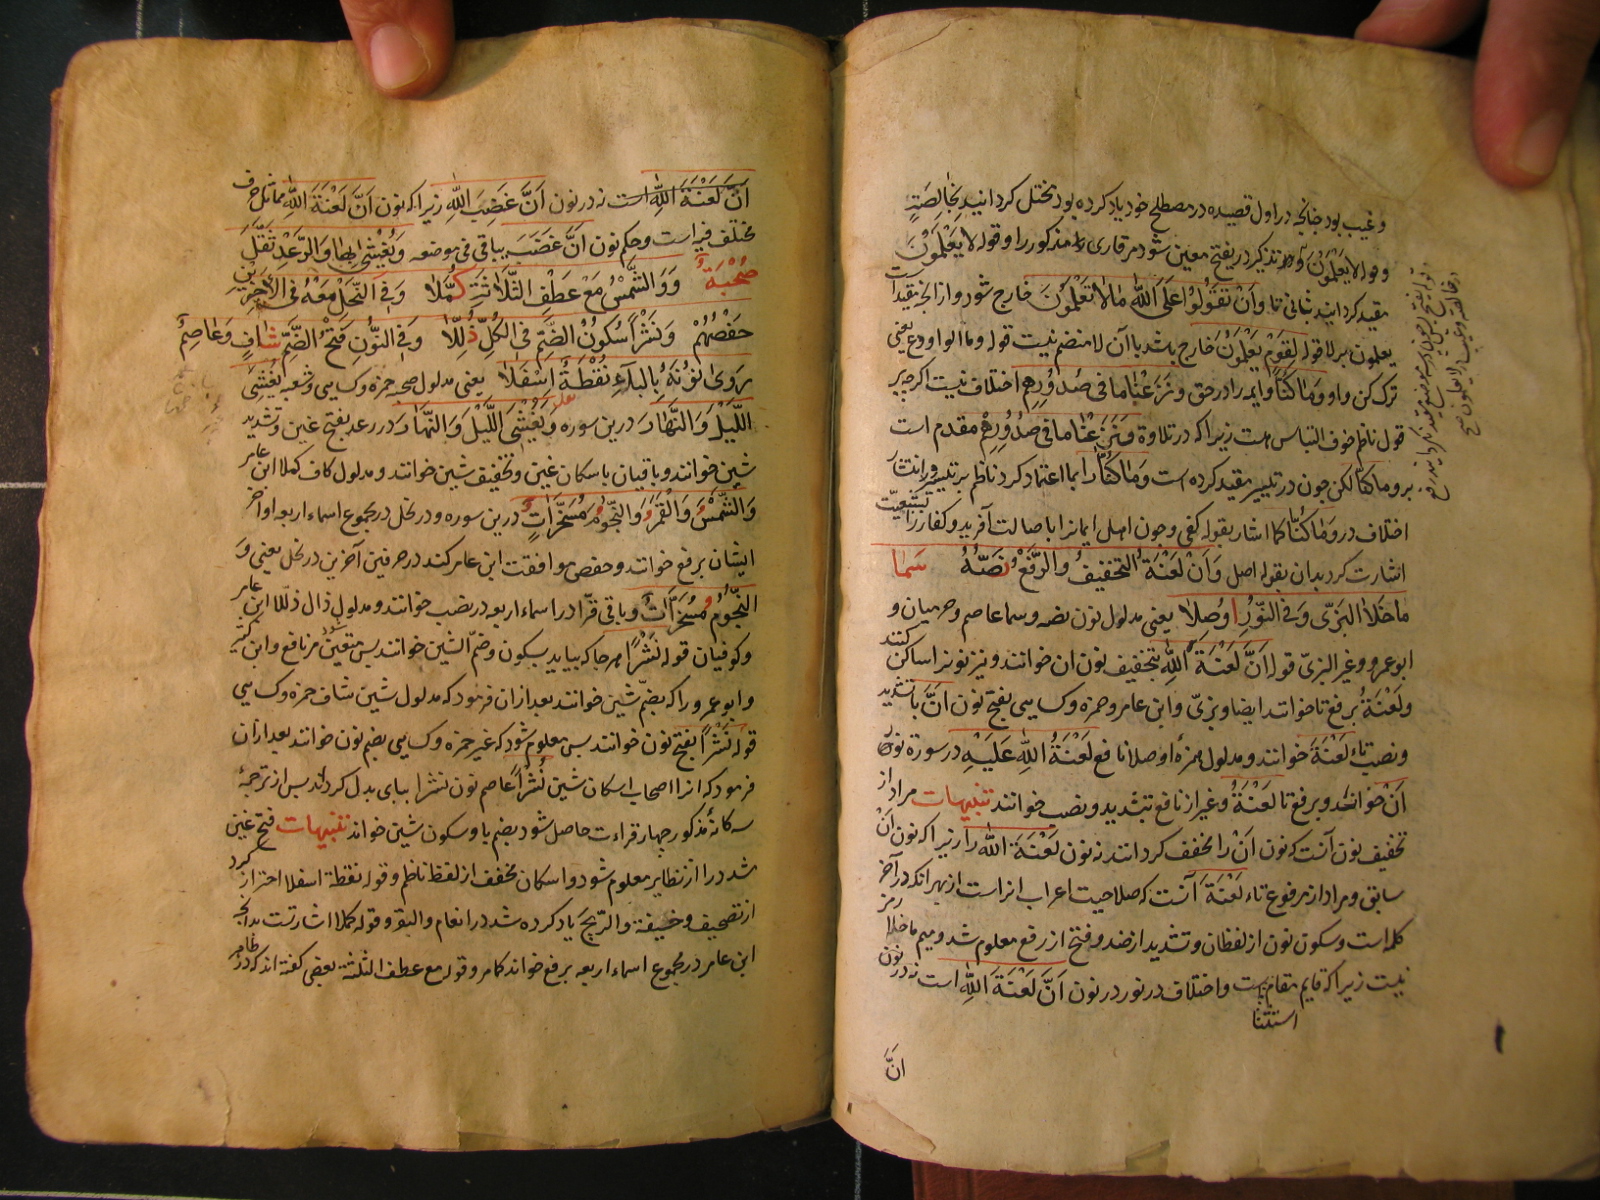 وغیب بود چنانچه در اول قصیده در مصطلح خود یاد کرده بود مختل کردانید بخالصة
وقوله لا یعلمون تذکیر در یفتح معین شود مر قاری مذکور را وقوله لا یَعْلَمُوْنَ
مقید کردانید بثانی تا وَاَنْ تَقُوْلُوْا عَلَی اللّٰهِ مَالَا تَعْلَمُوْنَ خارج شود و از آنجه بقید آت
یعلمون بر لا قوله لِقَوْمٍ یَعْلَمُوْنَ خارج باشد با آن لا منضم نیست قوله وما الواو دع یعنی
ترک کن واو وَمَا کُنَّا وایمه را در حق وَنَزَعْنَا مَا فِی صُدُوْرِهِمْ اختلاف نیست اکر چه بر
قول ناظم خوف التباس هست زیرا که در تلاوة وَنَزَعْنَا مَا فِی صُدُوْرِهِمْ مقدم است
بر وما کنا لکن چون در تیسیر مقید کرده است وَمَا کُنَّا را بما اعتماد کرد ناظم بر تیسیر و بر انتشار
اختلاف در وَمَا کُنَّا کما اشار بقوله کفی وچون اهل ایمانرا باصالت آفرید وکفار را بتبعیت
اشارت کرد بدان بقوله اصل وَاَنْ لَعْنَةُ التَّخْفِیْفُ وَالرَّفْعُ نَصُّهُ سَمَا
مَا خَلَا الْبَزِّیْ وَفِی النُّوْرِ اُوْصِلَا یعنی مدلول نون نصه وسما عاصم وحرمیان و
ابوعمرو وغیر البزیّ قوله اَنَّ لَعْنَةَ اللّٰهِ بتخفیف نون ان خوانند ونیز نونرا ساکن کنند
ولَعْنَةُ برفع تا خوانند ایضا وبزیّ وابن عامر وحمزه وکسایی بفتح نون اَنَّ با تشدید
ونصب تاء لَعْنَةَ خوانند ومدلول همزهٔ اوصلا نافع لَعْنَةُ اللّٰهِ عَلَیْهِ در سورة نور
اَنْ خوانند وبرفع تا لَعْنَةُ وغیر از نافع بتشدید ونصب خوانند تنبیهات مراد از
تخفیف نون آنست که نون اَنْ را مخفف کردانند نه نون لَعْنَةَ اللّٰه را زیرا که نون اَنْ
سابق ومراد از مرفوع تاء لَعْنَةَ آنست که صلاحیت اعراب انراست از بهر انکه در آخر
کلمه است وسکون نون از لفظ ان وتشدید از ضد وفتح از رفع معلوم شد ومیم ما خلا رمز
نیست زیرا که قایم مقام است واختلاف در نور در نون اَنَّ لَعْنَةَ اللّٰهِ است نه در نون
استثنا
انَّ
اَنَّ لَعْنَةَ اللّٰهِ است نه در نون اَنَّ غَضَبَ اللّٰهِ زیرا که نون اَنَّ لَعْنَةَ اللّٰهِ مماثل حرف
مختلف فیه است وحکم نون اَنَّ غَضَبَ بباقی فی موضعه وَیُغْشِیْ بِهَا وَالرَّعْدِ ثَقَّلَ
صُحْبَةٌ وَوَالشَّمْسُ مَعْ عَطْفِ الثَّلَاثَةِ کَمَّلَا وَفِی النَّحْلِ مَعْهُ فِی الْاَخِیْرَیْنِ
حَفْصُهُمْ وَنَشْرًا سُکُوْنُ الضَّمِّ فِی الْکُلِّ ذُلِّلَا وَفِی النُّوْنِ فَتْحُ الضَّمِّ شَافٍ وَعَاصِمٌ
رَوٰی نُوْنَهُ بِالْبَاءِ نُقْطَةٌ اَسْفَلَا یعنی مدلول صحبه حمزه وکسایی وشعبه یُغَشِّی
اللَّیْلَ وَالنَّهَارَ درین سوره وَیُغَشِّی اللَّیْلَ وَالنَّهَارَ در رعد بفتح غین وتشدید
شین خوانند وباقیان باسکان غین وتخفیف شین خوانند ومدلول کاف کملا ابن عامر
وَالشَّمْسُ وَالْقَمَرُ وَالنُّجُوْمُ مُسَخَّرَاتٌ درین سوره ودر نحل در مجموع اسماء اربعه اواخر
ایشان برفع خوانند وحفص موافقت ابن عامر کند در حرفین آخرین در نحل یعنی وَ
النُّجُوْمُ مُسَخَّرَاتٌ وباقی قرّا در اسماء اربعه در نصب خوانند ومدلول ذال ذللا ابن عامر
وکوفیان قوله نَشْرًا هر جا که بیاید بسکون وضمّ الشین خوانند بس متعین شود مر نافع وابن کثیر
وابوعمرو را که بضمّ شین خوانند بعد از ان فرمود که مدلول شین شاف حمزه وکسایی
قوله نَشْرًا بفتح نون خوانند بس معلوم شود که غیر حمزه وکسایی بضم نون خوانند بعد از ان
فرمود که از اصحاب اسکان شین نُشْرًا عاصم نون نشرا ببای بدل کرداند بس از ترجمهٔ
سه کانهٔ مذکور چهار قراءت حاصل شود بضم با وسکون شین خواند تنبیهات فتح غین
شدد را از نظایر معلوم شود واسکان مخفف از لفظ ناظم وقوله نقطة اسفلا احتراز کرد
از تصحیف وخیفة والریح یاد کرده شد در انعام والبقر وقوله کملا اشارتست بدانچه
ابن عامر در مجموع اسماء اربعه برفع خواند کما مر وقوله مع عطف الثلثة بعضی کفته اند که در ظاهر